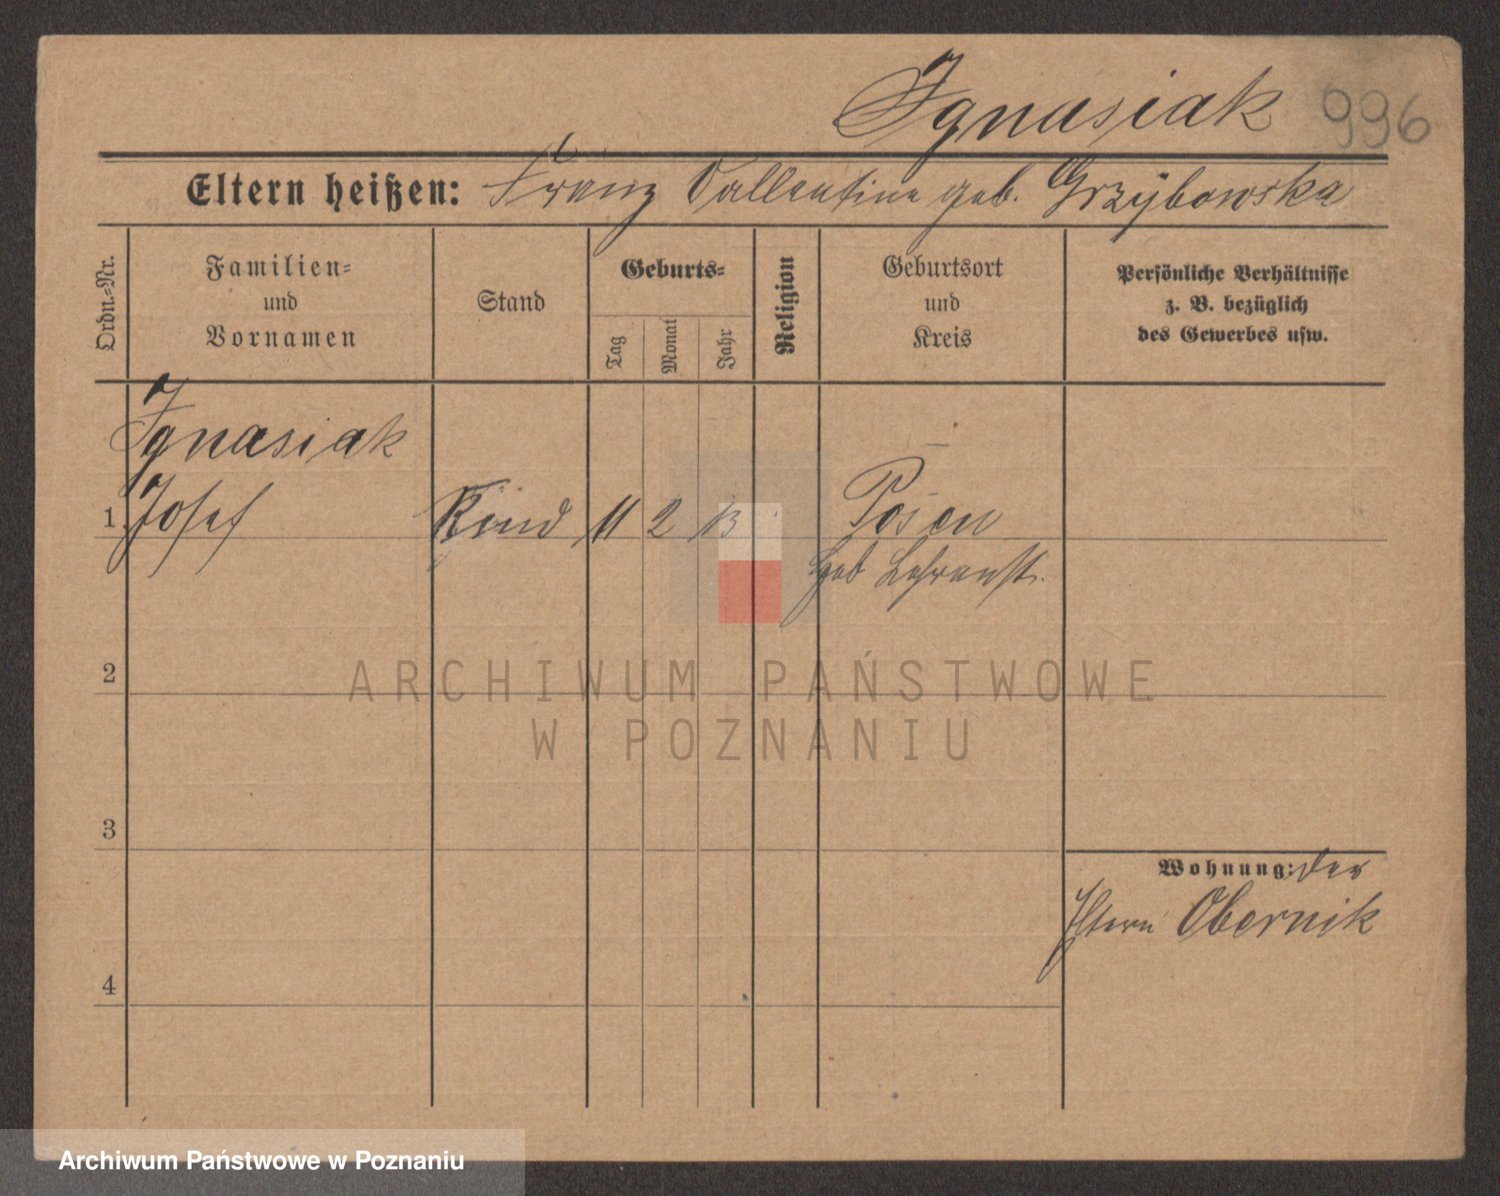 Ignasiak 996
Eltern heißen: Franz Vallentine geb. Grzybowska
Ordn.-Nr.
Familien-
und
Vornamen
Stand
Geburts-
Tag
Monat
Jahr
Religion
Geburtsort
und
Kreis
Persönliche Verhältnisse
z. B. bezüglich
des Gewerbes usw.
Ignasiak
1. Josef Kind 11 2 13 Posen
geb Lehranst.
2
ARCHIWUM PAŃSTWOWE
W POZNANIU
3
Wohnung: der
Eltern Obernik
4
Archiwum Państwowe w Poznaniu